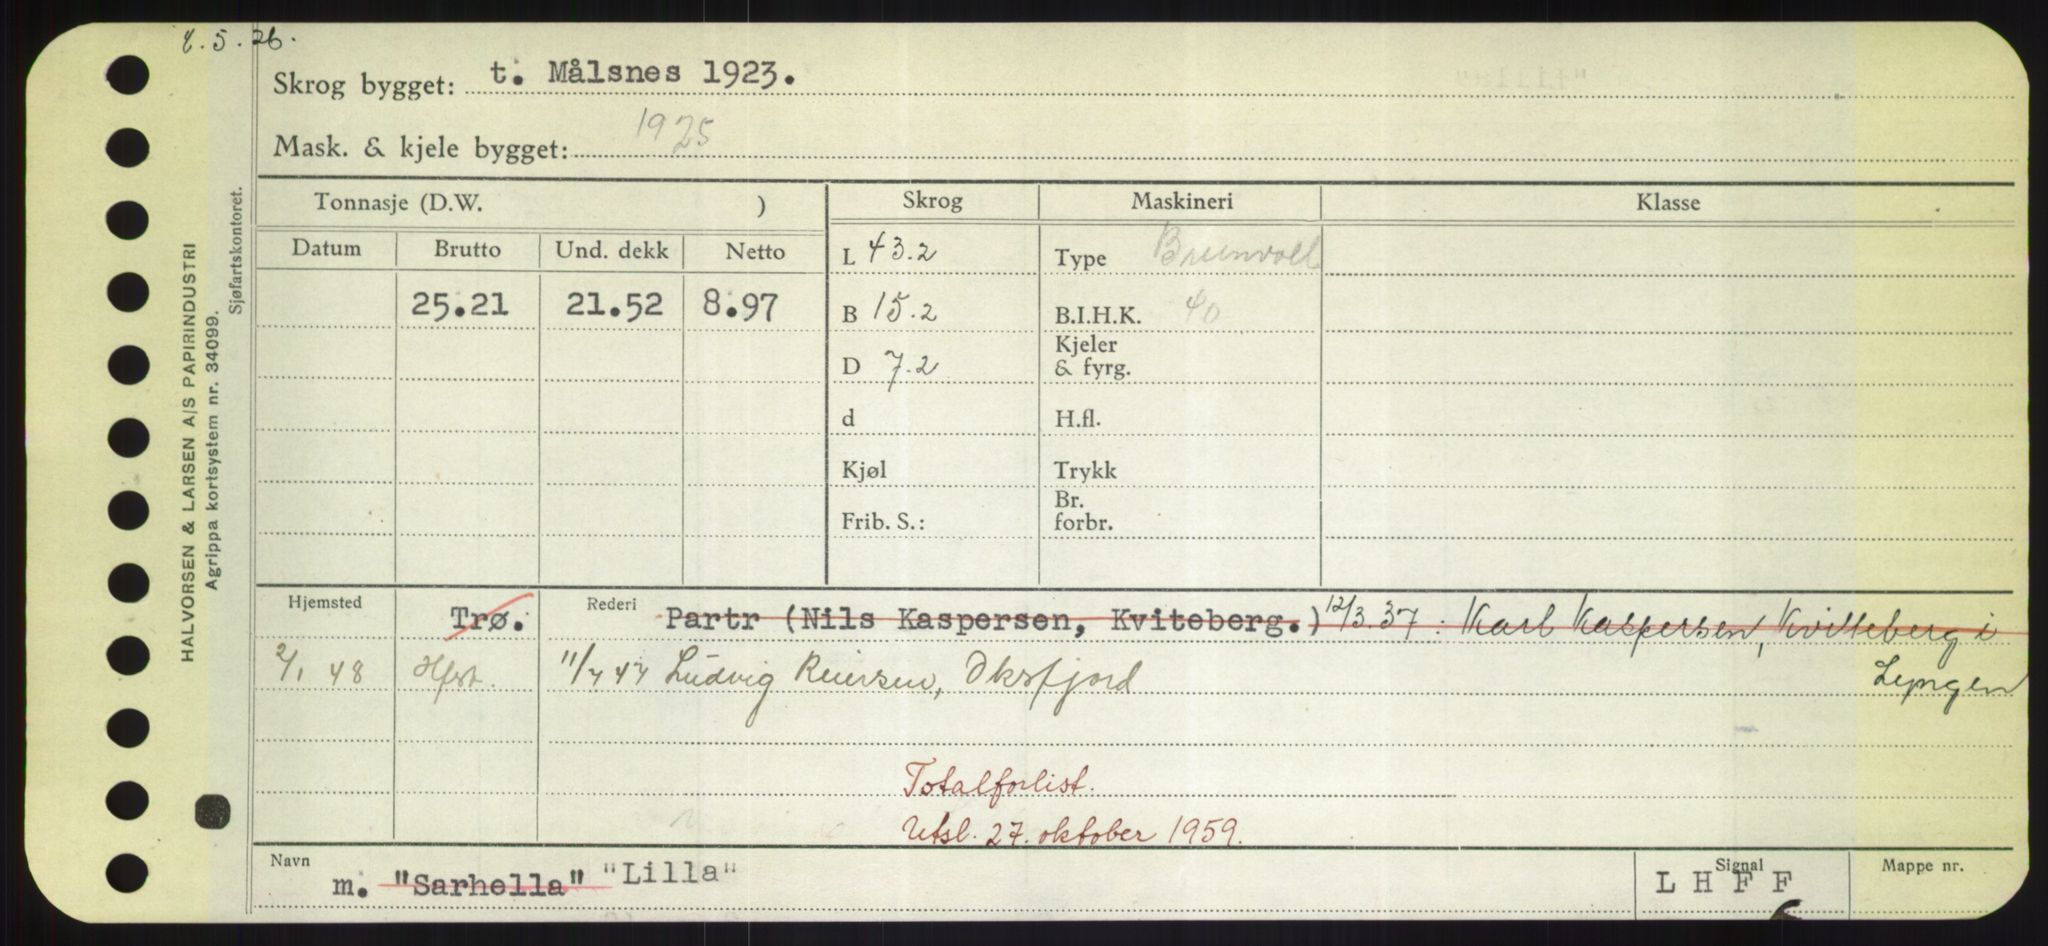 8.5.26.
Skrog bygget: t. Målsnes 1923.
Mask. & kjele bygget: 1925
Tonnasje (D.W. ) Skrog Maskineri Klasse
Datum Brutto Und. dekk Netto L 43.2 Type Brunvoll
25.21 21.52 8.97 B 15.2 B.I.H.K. 40
D 7.2 Kjeler & fyrg.
d H.fl.
Kjøl Trykk
Frib. S.: Br. forbr.
Hjemsted Trø. Rederi Partr (Nils Kaspersen, Kviteberg.) 12/3.37: Karl Kaspersen, Kvitteberg i
2/1 48 Hfst. 11/7 47 Ludvig Reiersen, Oksfjord Lyngen
Totalforlist.
Utsl. 27. oktober 1959.
Navn m. "Sarhella" "Lilla" Signal L H F F Mappe nr.
HALVORSEN & LARSEN A/S PAPIRINDUSTRI
Agrippa kortsystem nr. 34099.
Sjøfartskontoret.